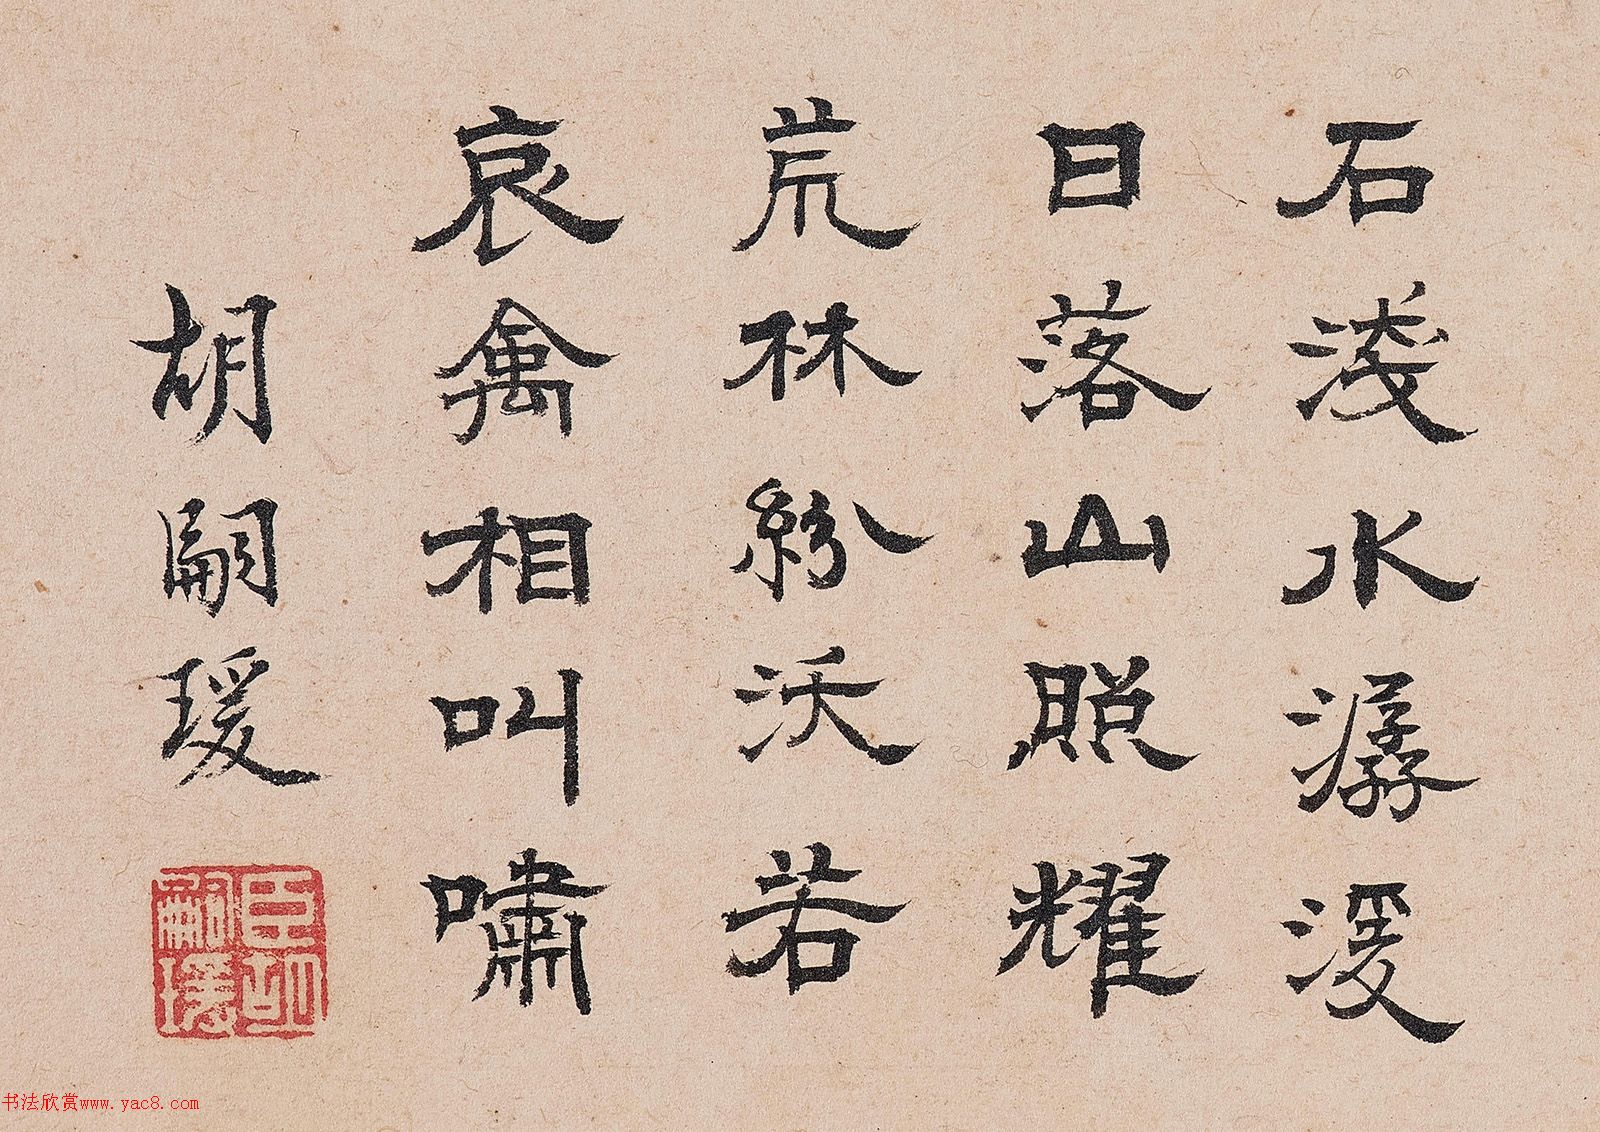 石淺水潺湲
日落山照耀
荒林紛沃若
哀禽相叫嘯
胡嗣瑗
臣胡
嗣瑗
书法欣赏www.yac8.com